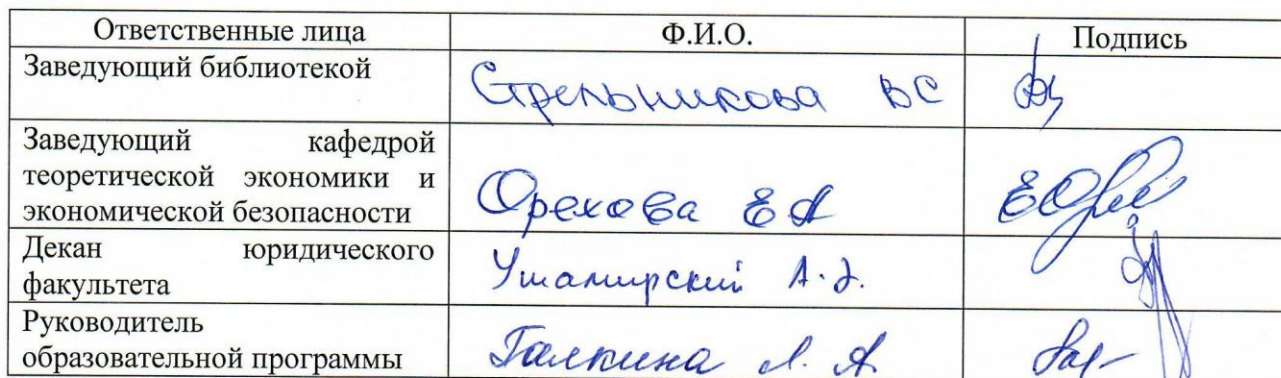 Ответственные лица Ф.И.О. Подпись
Заведующий библиотекой
Стрельникова ВС
Заведующий кафедрой
теоретической экономики и
экономической безопасности
Орехова ЕА
Декан юридического
факультета
Ушамирский А.Э.
Руководитель
образовательной программы
Галкина Л. А.